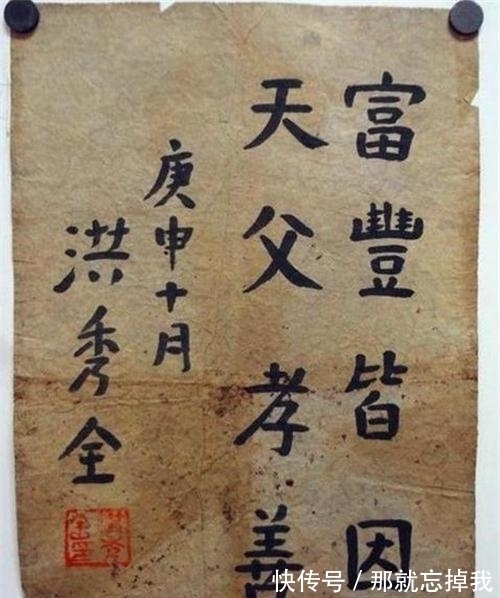 富豐皆因
天父孝善
庚申十月
洪秀全
快传号/那就忘掉我